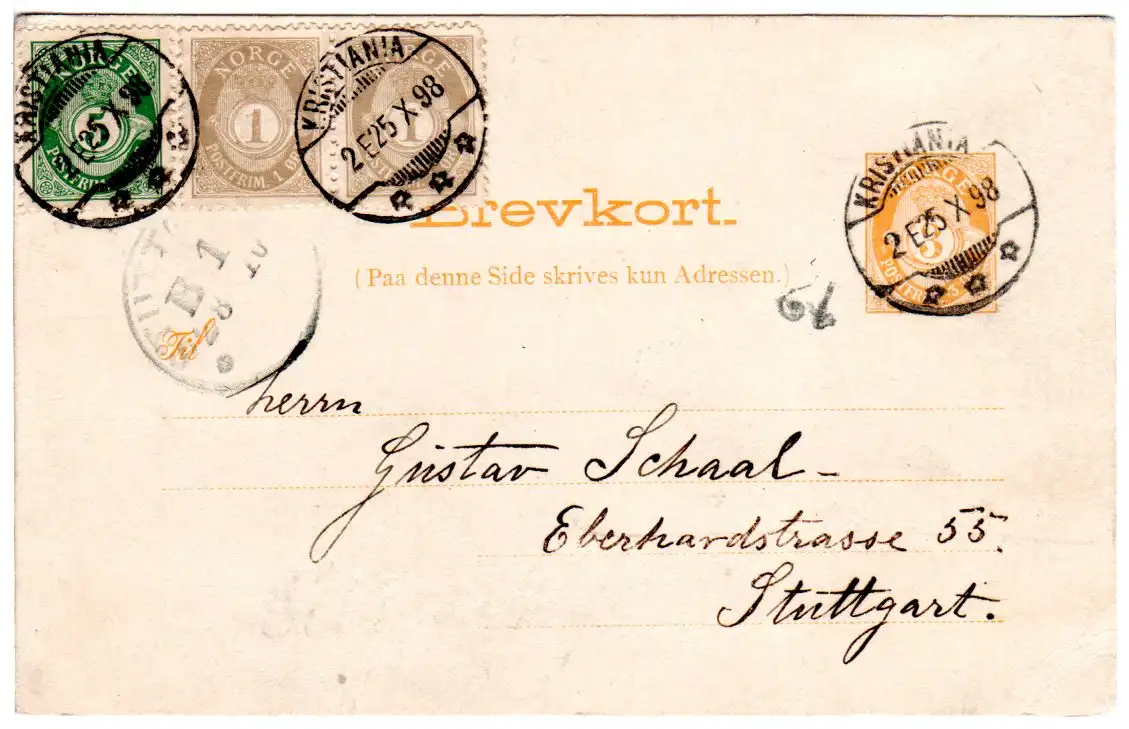 NORGE
5
POSTFRIM.
NORGE
1
POSTFRIM. 1 ØRE
1
KRISTIANIA
2 E 25 X 98
KRISTIANIA
2 E 25 X 98
Brevkort.
(Paa denne Side skrives kun Adressen.)
NORGE
3
POSTFRIM. 3
KRISTIANIA
2 E 25 X 98
B 1
28
10
Til
Herrn
Gustav Schaal -
Eberhardstrasse 55.
Stuttgart.